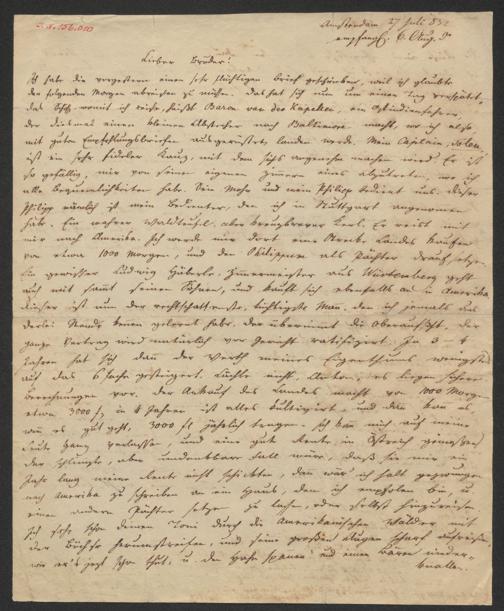 Amsterdam 27 Juli 832
empfang. 6. Aug. d°
Lieber Bruder!
Ich habe dir vorgestern einen sehr flüchtigen Brief geschrieben, weil ich glaubte
den folgenden Morgen abreisen zu müssen. Das hat sich nun um einen Tag verspätet,
das Schiff, womit ich reise, heißt Baron van der Kapellen, ein Ostindienfahrer,
der diesmal einen kleinen Abstecher nach Baltimore macht, wo ich also,
mit guten Empfehlungsbriefen ausgerüstet, landen werde. Mein Capitain,
ist ein sehr fideler Kauz, mit dem sichs angenehm machen wird. Er ist
so gefällig, mir von seinen eigenen Zimmern eins abzutreten, wo ich
alle Bequemlichkeiten habe. Ein Mohr und mein Philipp bedient uns. Dieser
Philipp nämlich ist mein Bedienter, den ich in Stuttgart angenommen
habe. Ein wahrer Waldteufel, aber kreuzbraver Kerl. Er reist mit
mir nach Amerika. Ich werde mir dort eine Strecke Landes kaufen
von etwa 1000 Morgen, und den Philipp als Pächter drauf setzen.
Ein gewisser Ludwig Häberle, Zimmermeister aus Würtemberg geht
auch mit sammt seinen Söhnen, und kauft sich ebenfalls an in Amerika
dieser ist nun der rechtschaffenste, tüchtigste Mann, den ich jemals aus
derlei Stande kennen gelernt habe. Der übernimmt die Oberaufsicht. Der
ganze Vertrag wird natürlich vor Gericht ratificirt. In 3 - 4
Jahren hat sich dann der Werth meines Eigenthums wenigstens
auf das 6 fache gesteigert. Lächle nicht, Anton, es liegen sichere
Berechnungen vor. Der Ankauf des Landes macht von 1000 Morgen
etwa 3000 f, in 4 Jahren ist alles kultivirt, und dann kann es,
wenn es gut geht, 3000 fl jährlich tragen. Ich kann mich auf meine
Leute ganz verlassen, und eine gute Rente in Östreich genießen
der schlimste, aber undenkbare Fall wäre, daß sie mir ein
Jahr lang meine Rente nicht schickten, dann wär' ich halt gezwungen
nach Amerika zu schreiben an ein Haus, dem ich empfolen bin, u.
einen andern Pächter setzen zu lassen, oder selbst hinzureisen
sich sehe schon deinen Toni durch die Amerikanischen Wälder mit
der Büchse herumstreifen, und seine großen Augen scharf aufreißen,
wie er's jetzt schon thut, u. den Hahn spannen und einen Bären nieder-
knallen.